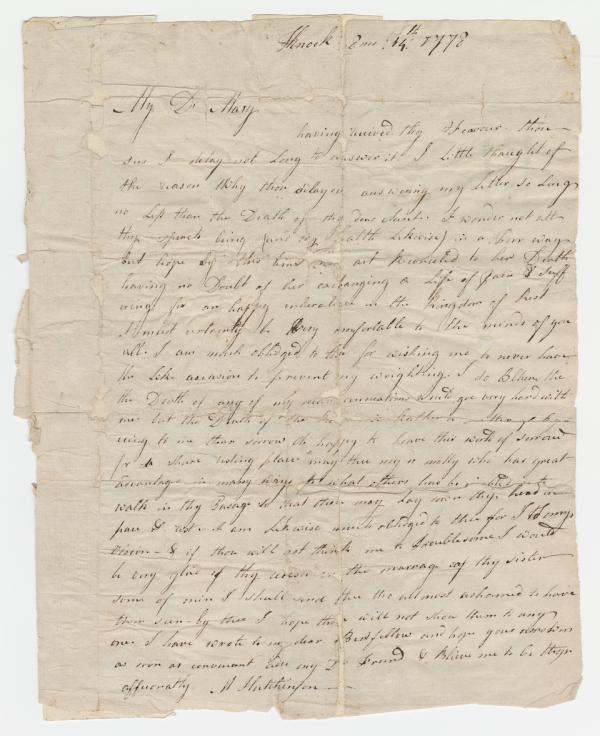 8mo 14th 1778
My Dr Mary
having received thy Favour thou
sees I delay not Long to answer it I Little thought of
the reason Why thou delayed answering my letter so Long
no Less than the Death of thy dear Aunt. I wonder not att
thy spirits being (and thy health Likewise) in a poor way
but hope by this time thou art Reconciled to her Death
having no Doubt of her exchanging a Life of pain & Suff
ering for an happy in the Kingdom of Rest
it must certainly be Very comfortable to the minds of you
all. I am much obliged to thee for wishing me to never have
the Like occasion to prevent my wrighting. I do Believe
the Death of any of my near connections would goe very hard with
me but the Death of
to me than sorrow Oh happy to Leave this world of sorrow
for a resting place may thee my who has great
advantages in many ways to what others
walk in thy so that thou may Lay down thy head in
peace & rest. I am Likewise much obliged to thee for
& if thou will not think me to Troublesome I would
be very glad of thy verses on the marriage of thy sister
some of mine I shall send thee tho allmost ashamed to have
them seen by thee I hope thou will not show them to any
one I have wrote to my dear Bedfellow and hope
as soon as convenient my Dr Freind & Blieve me to be thyn
affectionatly M Hutchinson